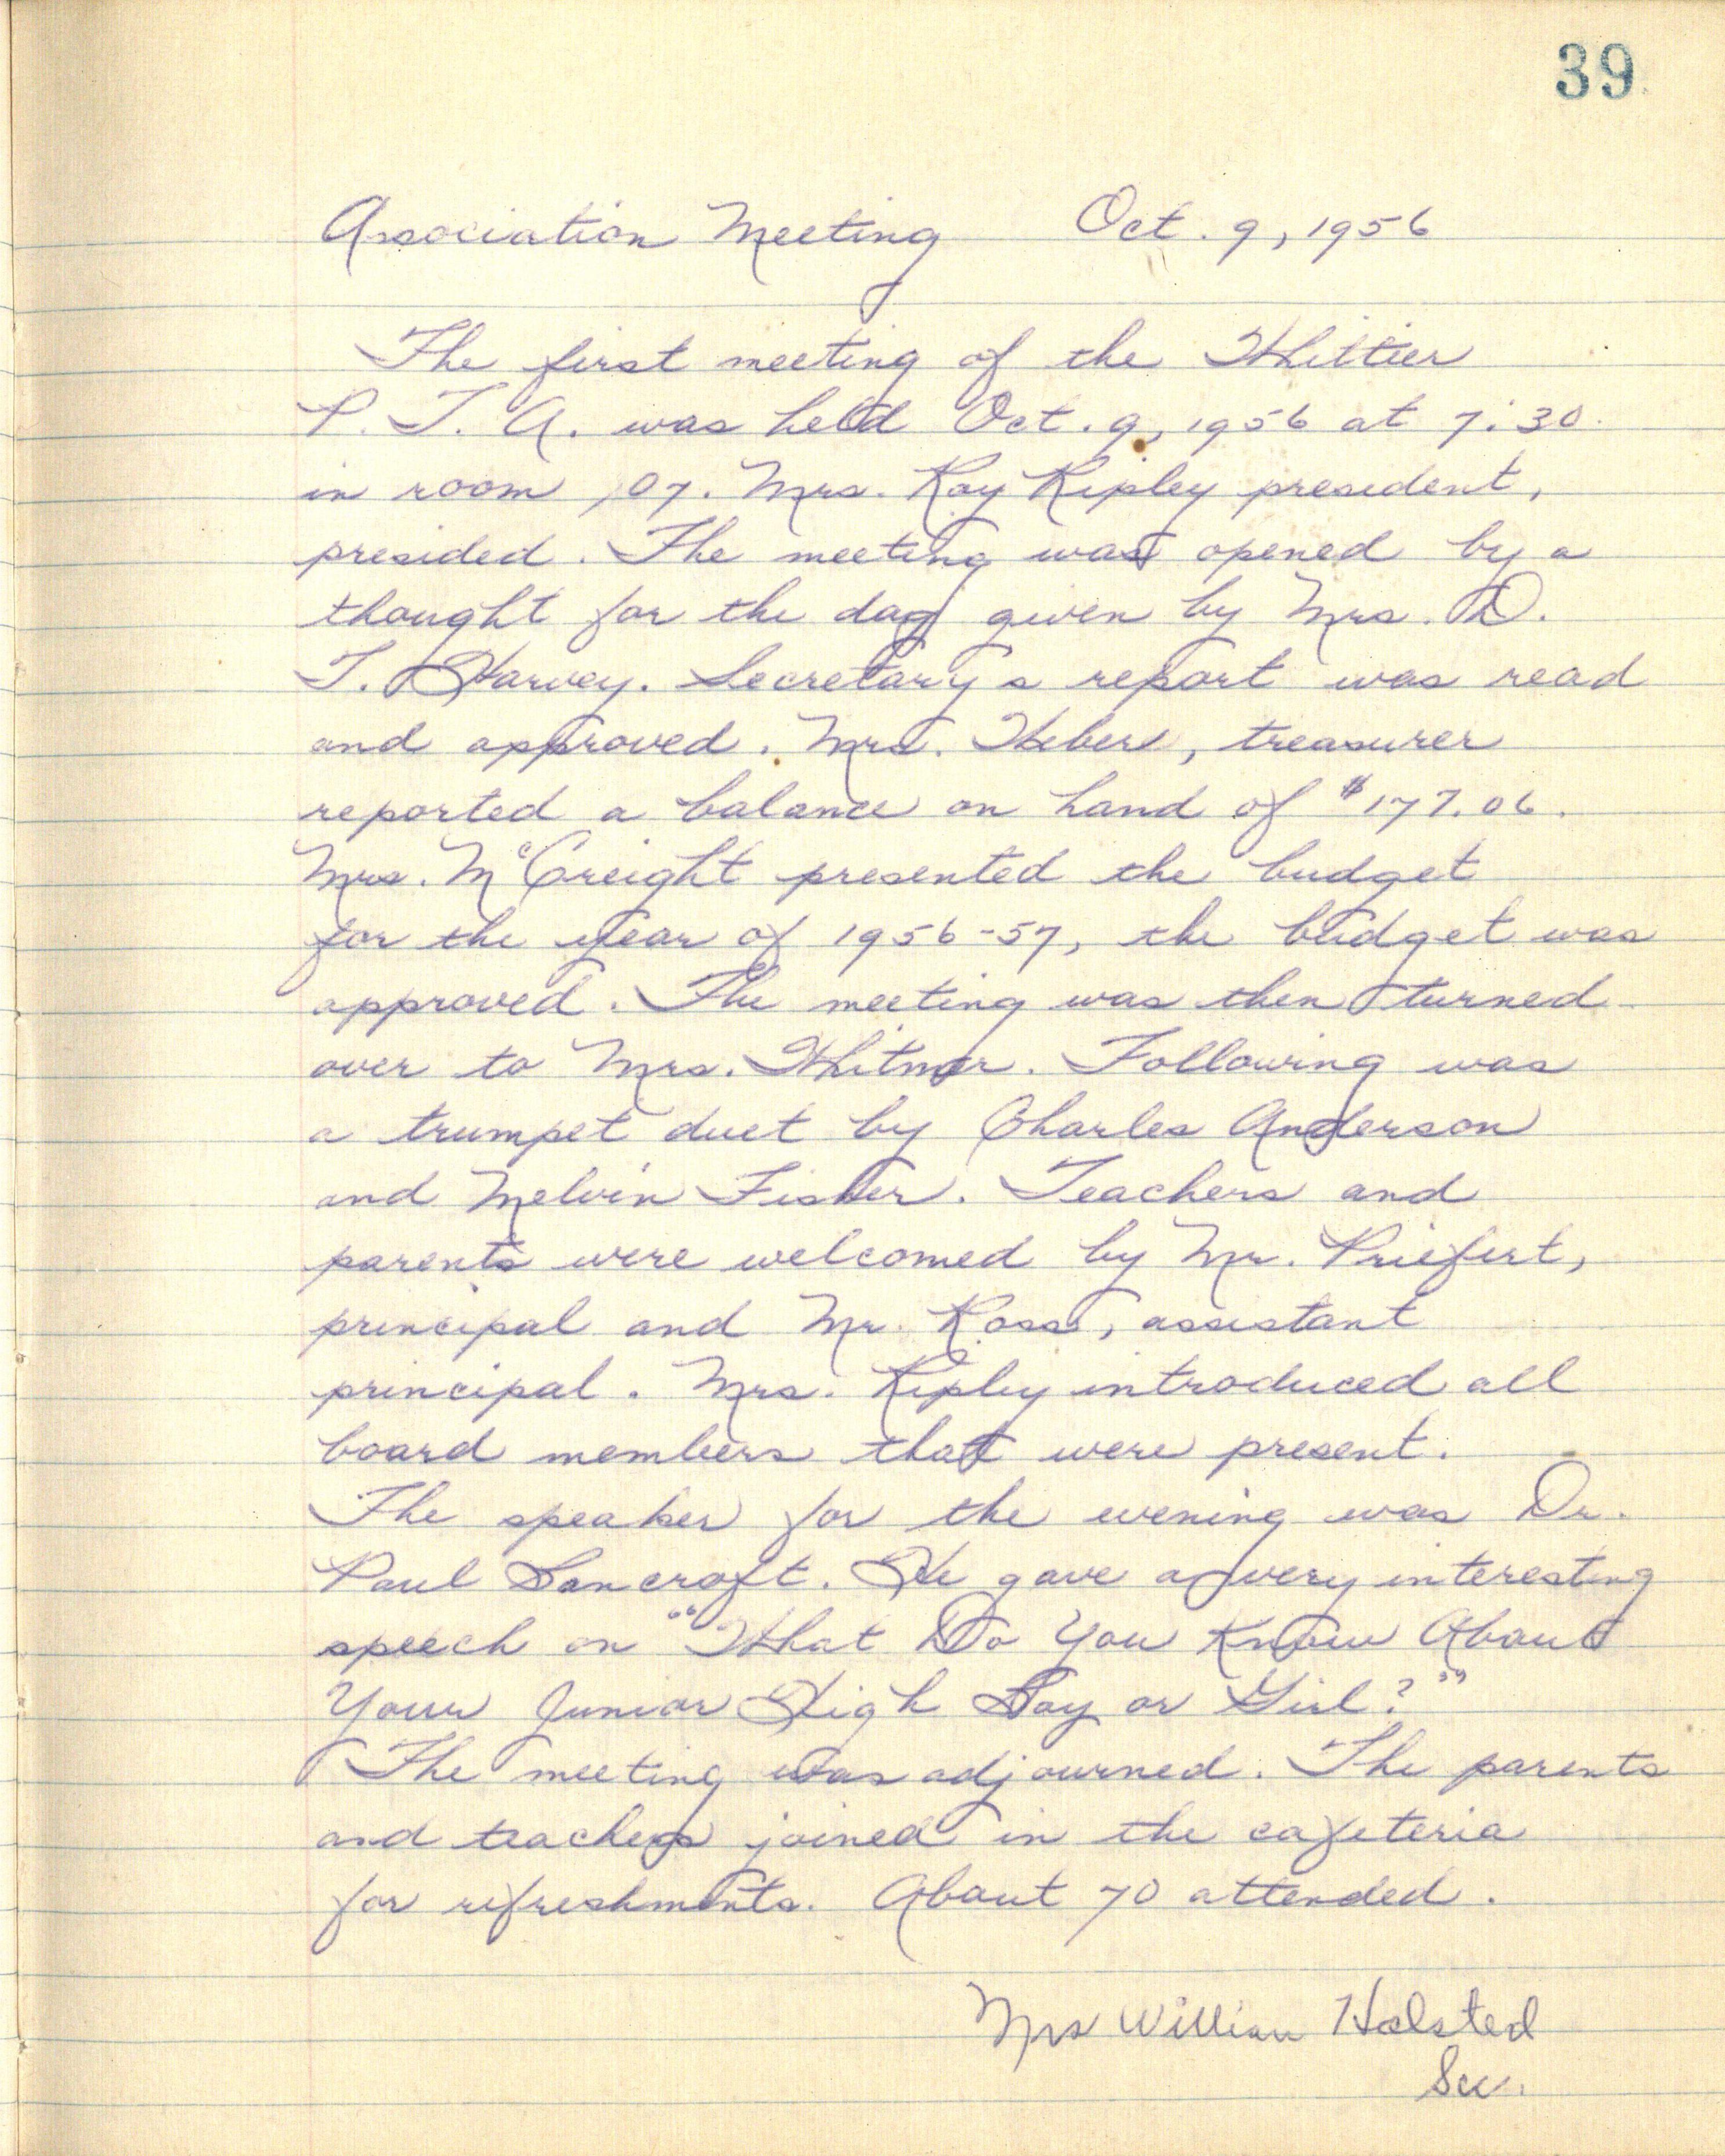 39
Association Meeting Oct. 9, 1956
The first meeting of the Whittier
P. T. A. was held Oct. 9, 1956 at 7:30
in room 107. Mrs. Ray Ripley president,
presided. The meeting was opened by a
thought for the day given by Mrs. D.
T. Harvey. Secretary's report was read
and approved. Mrs. Weber, treasurer
reported a balance on hand of $177.06.
Mrs. McCreight presented the budget
for the year of 1956-57, the budget was
approved. The meeting was then turned
over to Mrs. Whitmer. Following was
a trumpet duet by Charles Anderson
and Melvin Fisher. Teachers and
parents were welcomed by Mr. Priefert,
principal and Mr. Ross, assistant
principal. Mrs. Ripley introduced all
board members that were present.
The speaker for the evening was Dr.
Paul Bancroft. He gave a very interesting
speech on "What Do You Know About
Your Junior High Boy or Girl?"
The meeting was adjourned. The parents
and teachers joined in the cafeteria
for refreshments. About 70 attended.
Mrs William Halsted
Sec.